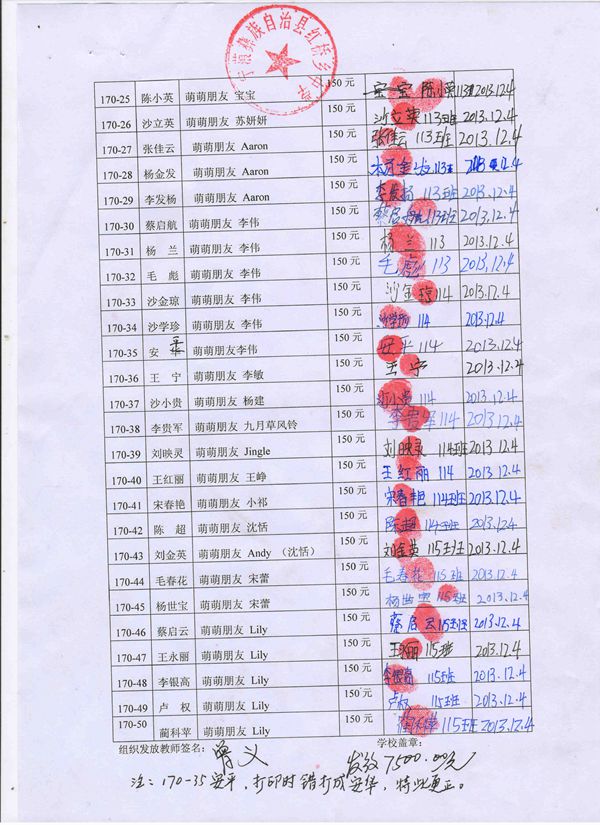 宁蒗彝族自治县红桥乡中学
170-25 陈小英 萌萌朋友 宝宝 150 元 宝宝 陈小英 113班 2013.12.4
170-26 沙立英 萌萌朋友 苏妍妍 150 元 沙立英 113班 2013.12.4
170-27 张佳云 萌萌朋友 Aaron 150 元 张佳云 113班 2013.12.4
170-28 杨金发 萌萌朋友 Aaron 150 元 113班
170-29 李发杨 萌萌朋友 Aaron 150 元 李发扬 113班 2013.12.4
170-30 蔡启航 萌萌朋友 李伟 150 元 蔡启航 113班 2013.12.4
170-31 杨 兰 萌萌朋友 李伟 150 元 杨兰 113 2013.12.4
170-32 毛 彪 萌萌朋友 李伟 150 元 毛彪 113 2013.12.4
170-33 沙金琼 萌萌朋友 李伟 150 元 沙金琼 114 2013.12.4
170-34 沙学珍 萌萌朋友 李伟 150 元 沙学珍 114 2013.12.4
170-35 安 平 萌萌朋友李伟 150 元 安平 114 2013.12.4
170-36 王 宁 萌萌朋友 李敏 150 元 王宁 2013.12.4
170-37 沙小贵 萌萌朋友 杨建 150 元 沙小贵 114 2013.12.4
170-38 李贵军 萌萌朋友 九月草风铃 150 元 李贵军 114 2013.12.4
170-39 刘映灵 萌萌朋友 Jingle 150 元 刘映灵 114班 2013.12.4
170-40 王红丽 萌萌朋友 王峥 150 元 王红丽 114 2013.12.4
170-41 宋春艳 萌萌朋友 小祁 150 元 宋春艳 114班 2013.12.4
170-42 陈 超 萌萌朋友 沈恬 150 元 陈超 114班 2013.12.4
170-43 刘金英 萌萌朋友 Andy （沈恬） 150 元 刘金英 115班 2013.12.4
170-44 毛春花 萌萌朋友 宋蕾 150 元 毛春花 115班 2013.12.4
170-45 杨世宝 萌萌朋友 宋蕾 150 元 杨世宝 115班 2013.12.4
170-46 蔡启云 萌萌朋友 Lily 150 元 蔡启云 115班 2013.12.4
170-47 王永丽 萌萌朋友 Lily 150 元 115班 2013.12.4
170-48 李银高 萌萌朋友 Lily 150 元 李银高 115班 2013.12.4
170-49 卢 权 萌萌朋友 Lily 150元 卢权 115班 2013.12.4
170-50 蔺科苹 萌萌朋友 Lily 150 元 蔺科苹 115班 2013.12.4
组织发放教师签名： 曾义 学校盖章：
发放 7500.00元
注：170-35 安平，打印时错打成安华，特此更正。